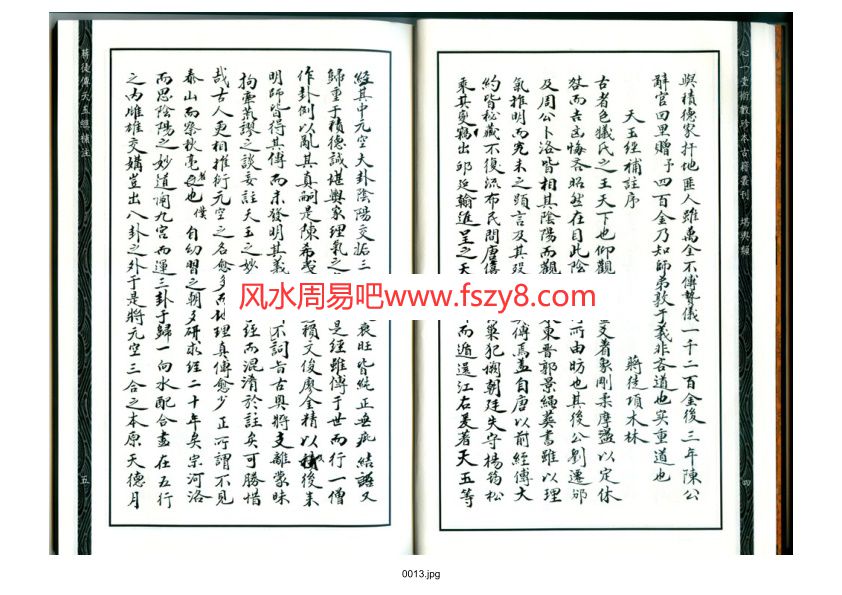 心一堂術數珍本古籍叢刊 堪輿類
四
與積德家扦地匪人雖萬全不傳贄儀一千二百金後三年陳公
辭官回里贈予四百金乃知師弟敦于義非吝道也实重道也
天玉經補註序
蔣徒項木林
古者包犧氏之王天下也仰觀 爻着象剛柔摩盪以定休
咎而吉凶悔吝昭然在目此陰 所由昉也其後公劉遷邠
及周公卜洛皆相其陰陽而觀 東晋郭景純葬書雖以理
氣推明而究未之顯言及其殁 傳焉盖自唐以前經傳大
約皆秘藏不復流布民間唐僖 巢犯闕朝廷失守楊筠松
乘其变竊出邱延翰進呈之天 而遁迳江右爰著天玉等
經其中元空大卦陰陽交姤三 衰旺皆純正無疵結語又
歸重于積德誠堪輿家理氣之 是經雖傳于世而行一僧
作卦例以亂其真嗣是陳希夷 賴文俊廖金精以後來
明師皆得其傳而未發明其義 不詞旨古奧將支離蒙昧
拘牽荒謬之談妄註天玉之妙 經而混淆於註矣可勝惜
哉古人更相推衍元空之名愈多而地理真傳愈少正所謂不見
泰山而察秋毫者也僕自幼習之朝夕研求經二十年矣宗河洛
而思陰陽之妙道闡九宮而運三卦于歸一向水配合盡在五行
之内雌雄交媾豈出八卦之外于是將元空三合之本原天德月
蔣徒傳天玉經補注
五
风水周易吧www.fszy8.com
0013.jpg